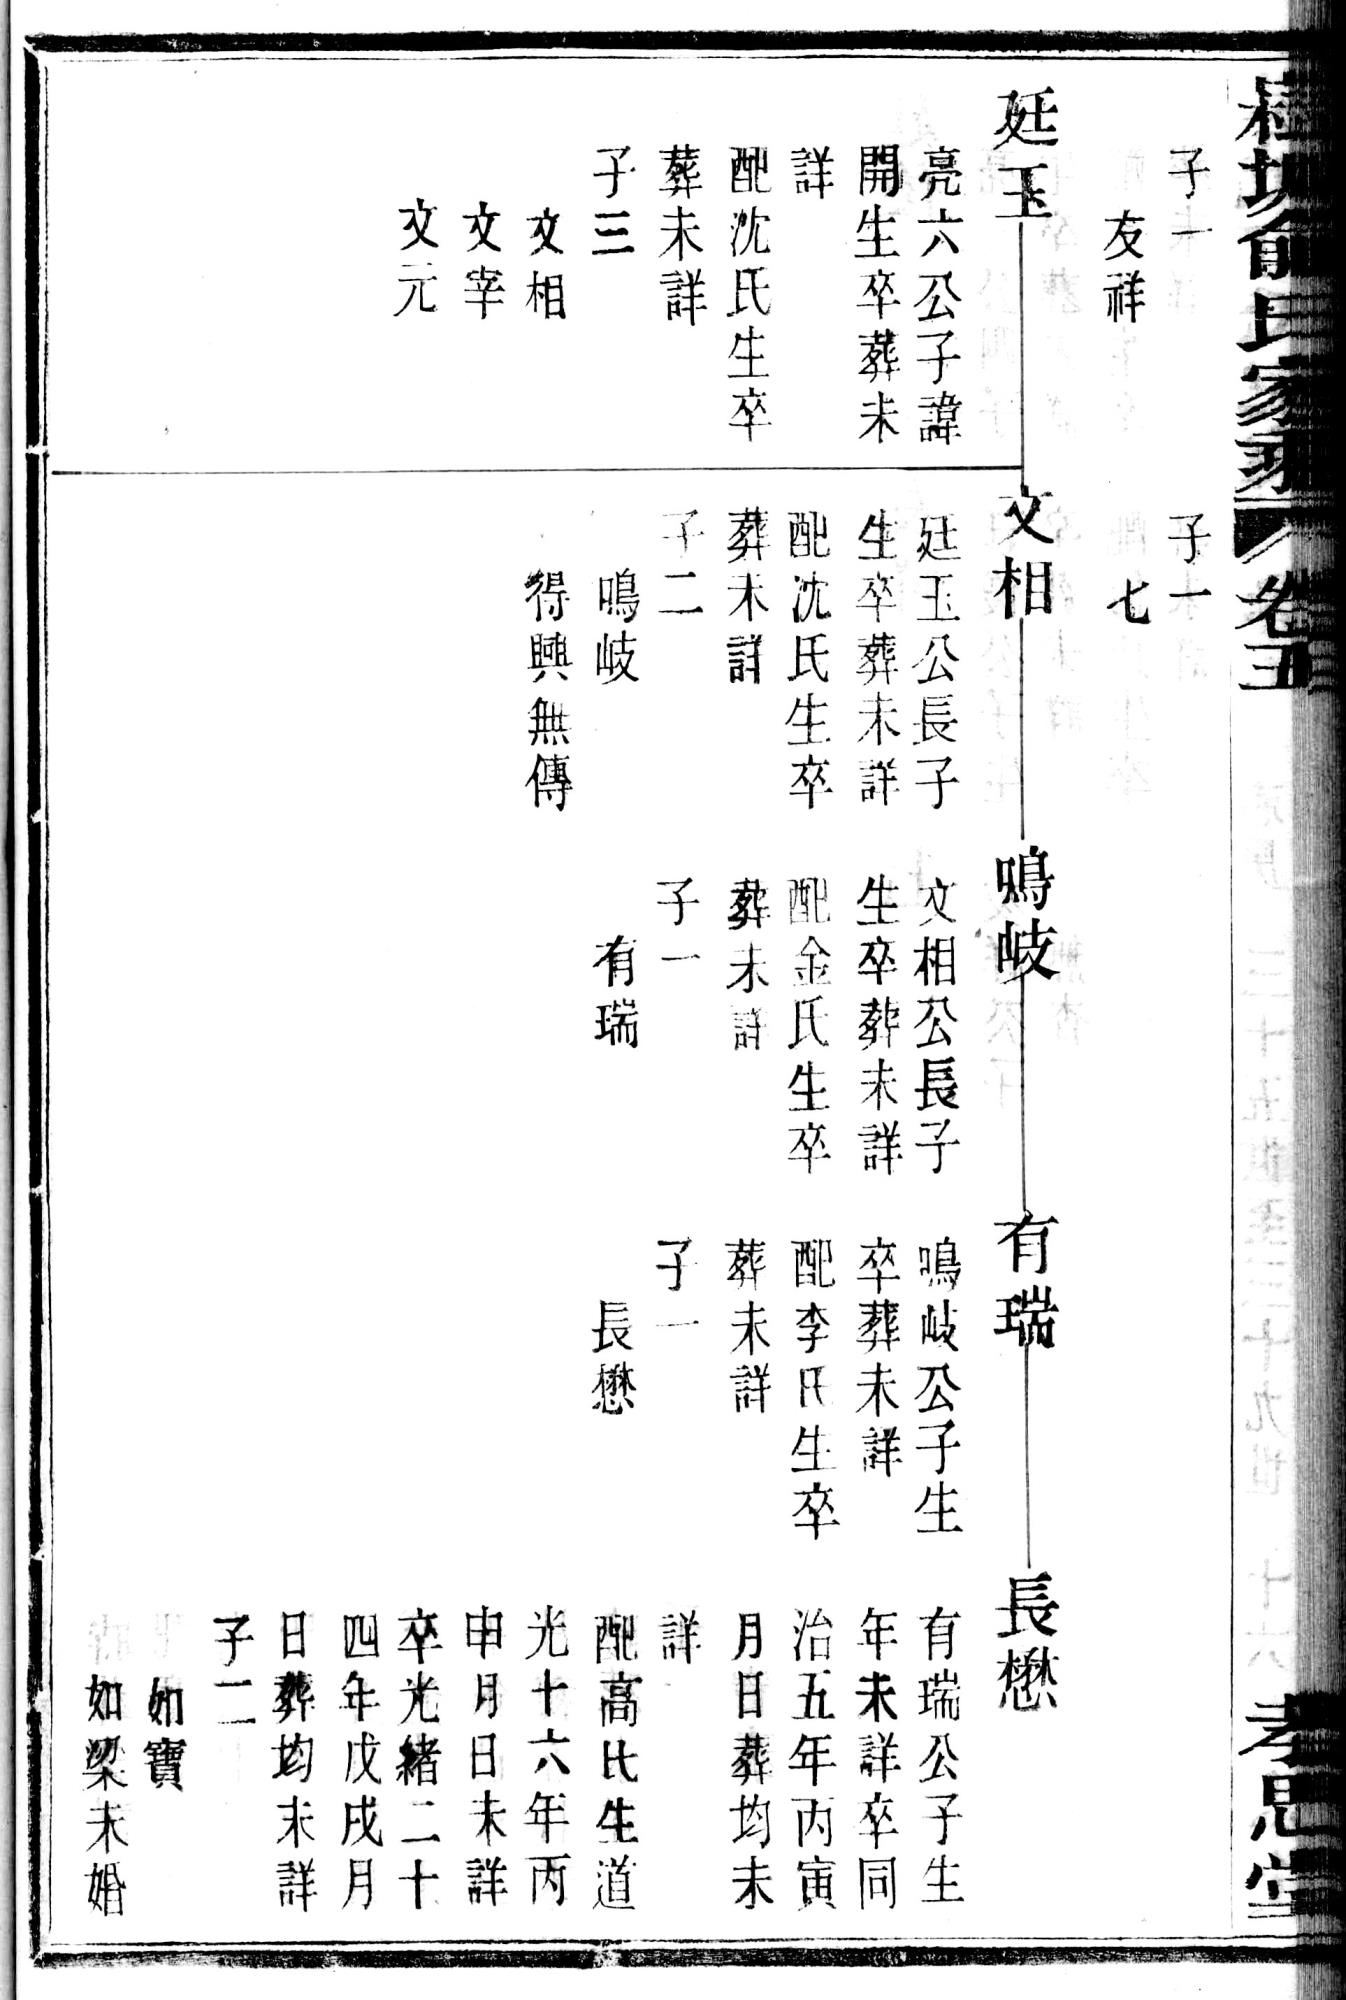 俞氏家乘 卷五
孝思堂
子一
友祥
子一
七
廷玉
亮六公子諱
開生卒葬未
詳
配沈氏生卒
葬未詳
子三
文相
文宰
文元
文相
廷玉公長子
生卒葬未詳
配沈氏生卒
葬未詳
子二
鳴岐
得興無傳
鳴岐
文相公長子
生卒葬未詳
配金氏生卒
葬未詳
子一
有瑞
有瑞
鳴岐公子生
卒葬未詳
配李氏生卒
葬未詳
子一
長懋
長懋
有瑞公子生
年未詳卒同
治五年丙寅
月日葬均未
詳
配高氏生道
光十六年丙
申月日未詳
卒光緒二十
四年戊戌月
日葬均未詳
子二
如寶
如梁未婚